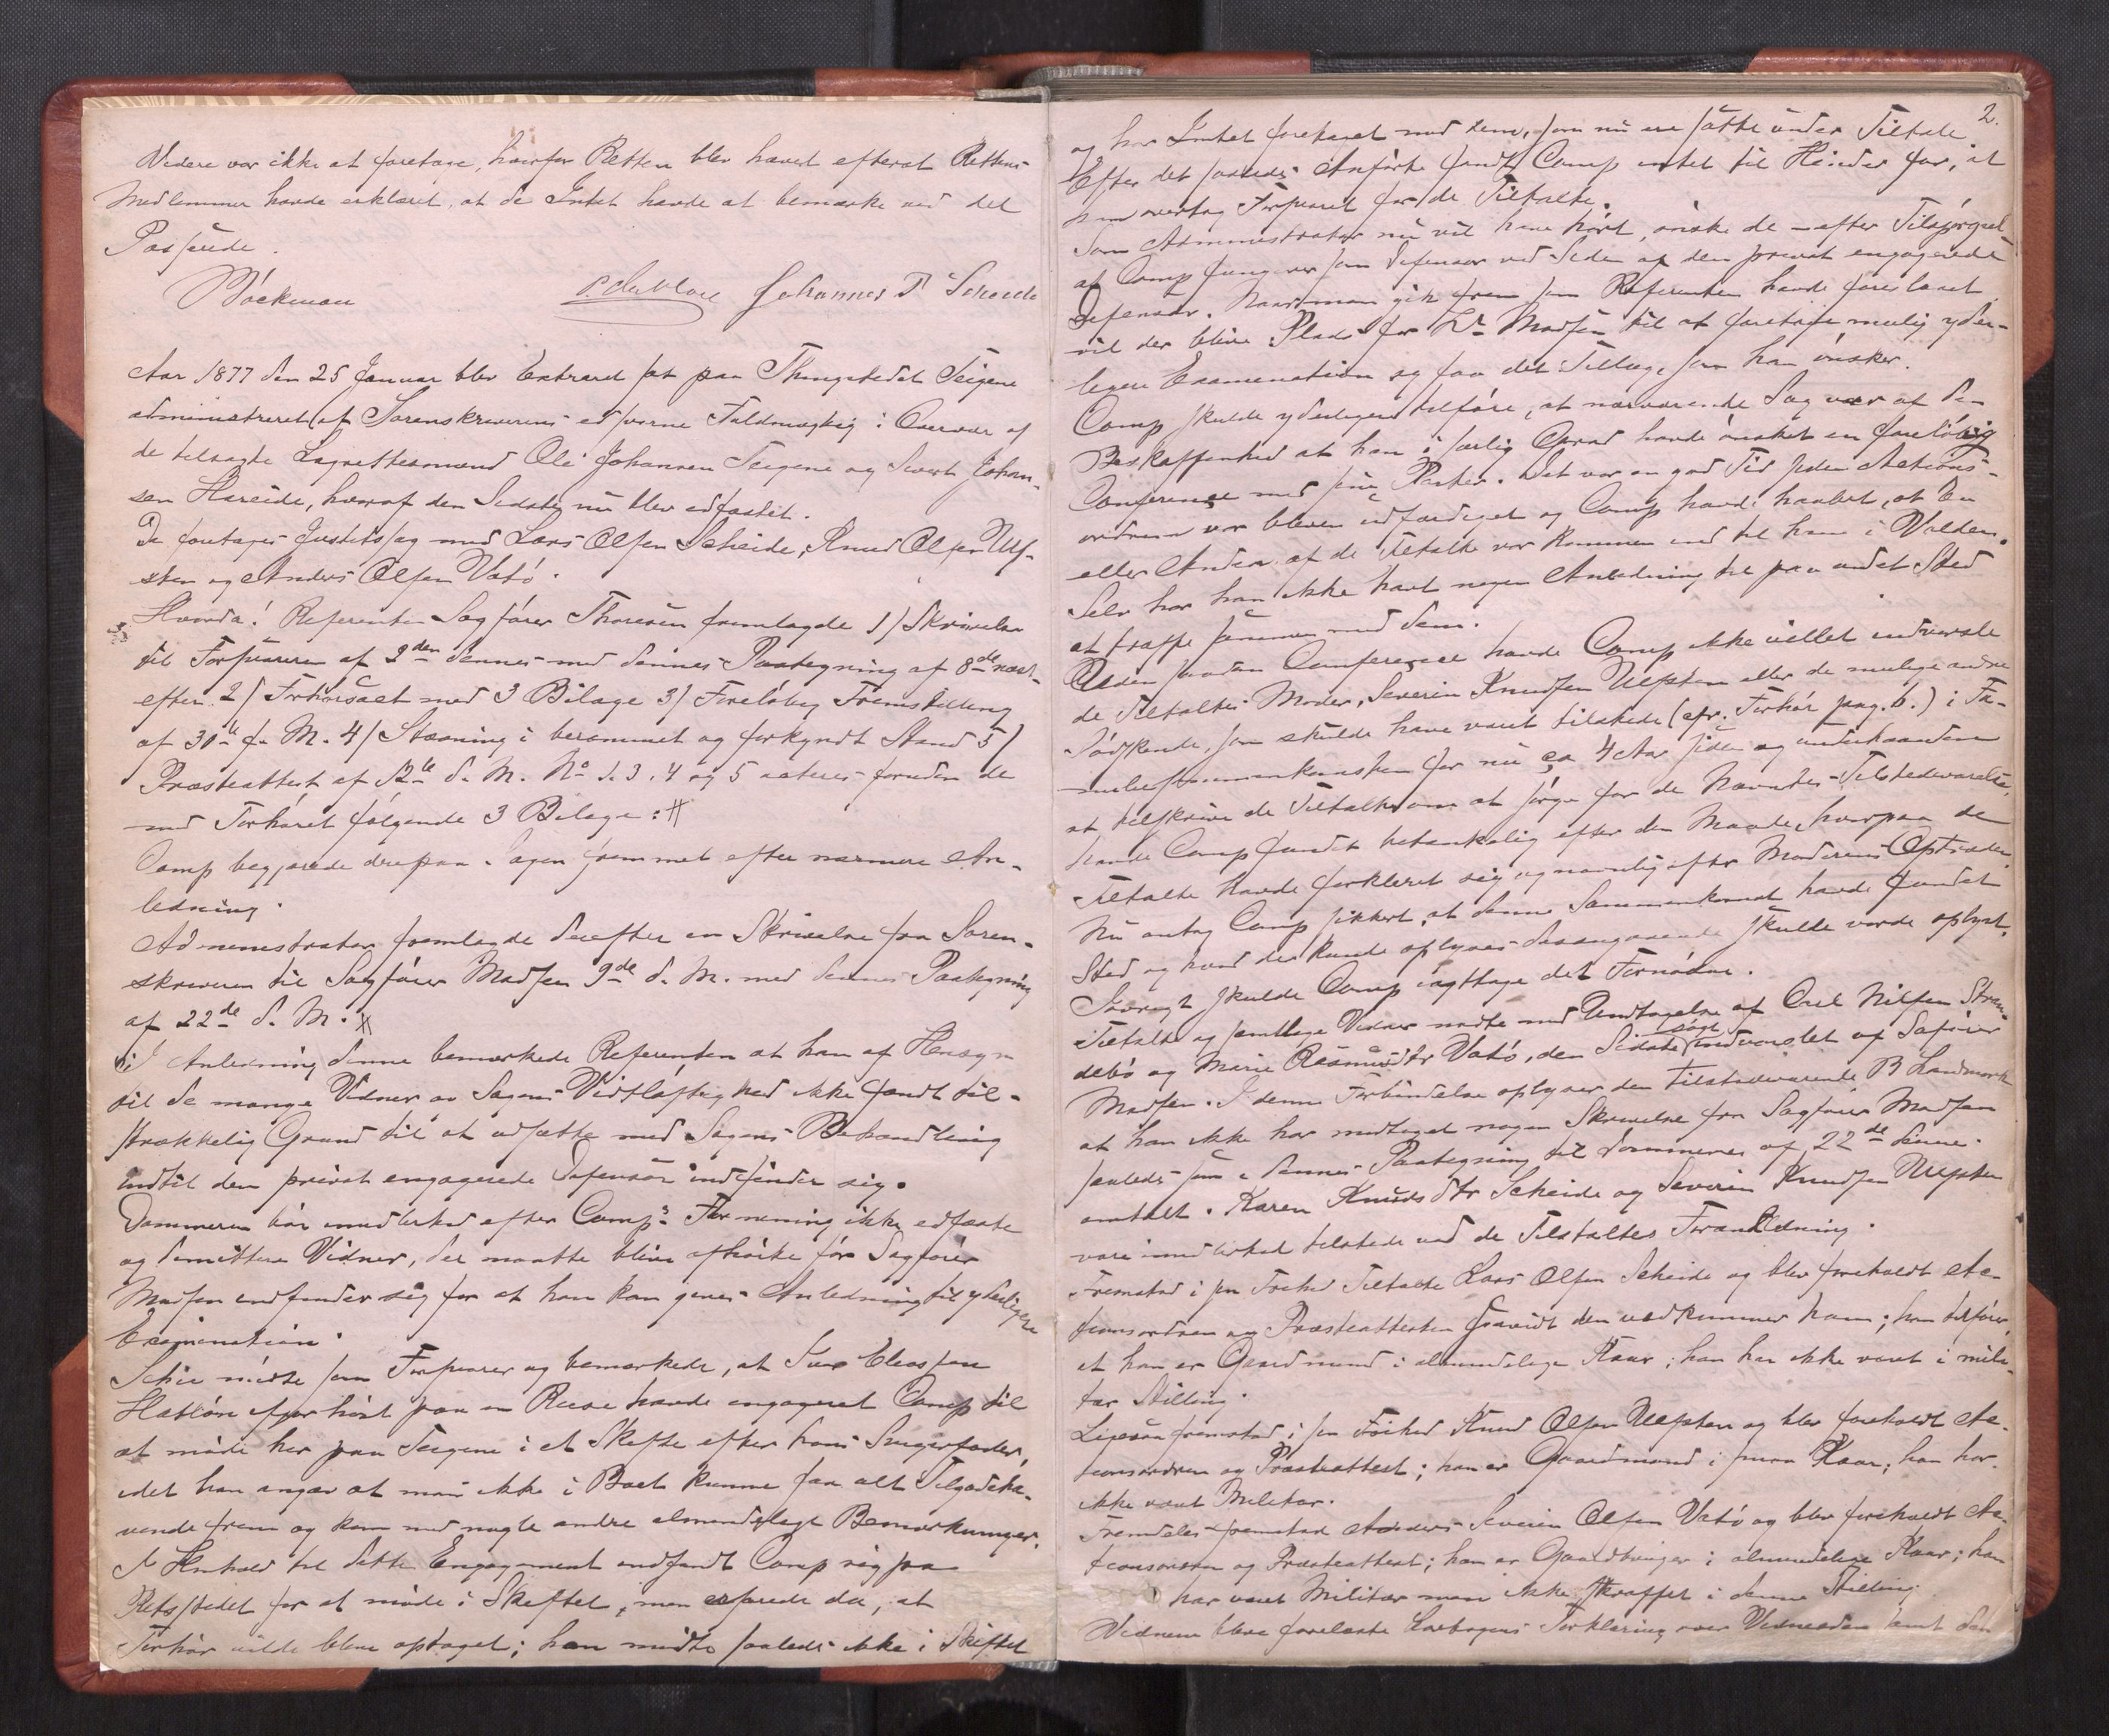 Videre var ikke at foretage, hvorfor Retten blev hævet efterat Rettens
Medlemmer havde erklæret, at de Intet havde at bemærke ved det
Passerede.
Böckman Johannes P Scheide
Aar 1877 den 25 Januar blev Extraret sat paa Thingstedet Teigene
administreret af Sorenskriverens edsvorne Fuldmægtig i Overvær af
de tilsagte Lagrettesmænd Ole Johansen Teigene og Sivert Johan-
sen Hareide, hvoraf den Sidste nu blev edfæstet.
Da foretages Justitssag mod Lars Olsen Scheide, Knud Olsen Ulf-
sten og Anders Olsen Vatö.
Hvorda! Referenten Sagförer Thoresen fremlagde 1/ Skrivelse
til Forsvareren af 2den dennes med dennes Paategning af 8de næst-
efter 2/ Forhörsact med 3 Bilage 3/ Foreløbig Fremstilling
af 30te f. M. 4/ Stævning i berammet og forkyndt Stand 5/
Præsteattest af 12te d. M. No 1. 3. 4 og 5 acteres foruden de
med Forhöret fölgende 3 Bilage: #
Camp begjærede derpaa Sagen fremmet efter nærmere An-
ledning.
Administrator fremlagde derefter en Skrivelse fra Soren-
skriveren til Sagförer Madsen 9de d. M. med dennes Paategning
af 22de d. M. #
I Anledning denne bemærkede Referenten at han af Hensyn
til de mange Vidner og Sagens Vidtløftighed ikke fandt til-
strækkelig Grund til at udsætte med Sagens Behandling
indtil den privat engagerede Defensor indfinder sig.
Dommeren bör imidlertid efter Camps Formening ikke edfæste
og demittere Vidner, der maatte blive afhörte för Sagförer
Madsen indfinder sig for at han kan gives Anledning til yderligere
Examination.
mödte som Forsvarer og bemærkede, at
Hatlöen ifjor höst paa en Reise havde engageret Camp til
at möde her paa Teigene i et Skifte efter hans Svigerfader,
idet han angav at man ikke i Boet kunne faa alt Tilgodeha-
vende frem og kom med nogle andre almindelige Bemærkninger.
I Henhold til dette Engagement indfandt Camp sig paa
Retsstedet for at möde i Skiftet, men erfarede da, at
Forhör vilde blive optaget; han mödte saaledes ikke i Skiftet
2.
og har Intet foretaget mod dem, som nu ere satte under Tiltale
Efter det saaledes Anförte fandt Camp intet til Hinder for, at
han overtog Forsvaret for de Tiltalte.
Som Administrator nu vil have hört, önske de – efter Tilspörgsel
at Camp fungerer som Defensor ved Siden af den privat engagerede
Defensor. Naar man gik frem som Referenten havde foreslaaet
vil der blive Plads for Hr Madsen til at foretage mulig yder-
ligere Examination og faa det Tillæg, som han önsker.
Camp skulde yderligere tilföre, at nærværende Sag var af den
Beskaffenhed at han i særlig Grad havde önsket en foreløbig
Conference med sine Parter. Det var en god Tid siden Actions-
ordren var bleven udfærdiget og Camp havde haabet, at En
eller Anden af de Tiltalte var kommen ind til ham i Volden.
Selv har han ikke havt nogen Anledning til paa andet Sted
at træffe sammen med dem.
Uden saadan Conference havde Camp ikke villet indvarsle
de Tiltaltes Moder, Severin Knudsen Ulfsten eller de mulige andre
Södskende, som skulde have været tilstede (cfr. Forhör pag. 6.) i Fa-
miliesammenkomsten for nu ca 4 Aar siden og underhaanden
at tilskrive de Tiltalte om at sörge for de Nævntes Tilstedeværelse,
havde Camp fundet betænkelig efter den Maade, hvorpaa de
Tiltalte havde forklaret sig og navnlig efter Moderens Optræden.
Nu antog Camp sikkert, at denne Sammenkomst havde fundet
Sted og hvad der kunde oplyses desangaaende skulde vorde oplyst.
Iövrigt skulde Camp iagttage det Fornödne.
Tiltalte og samtlige Vidner mödte med Undtagelse af Carl Nilsen Stran-
debö og Marie Rasmusdtr Vatö, den Sidste sögt indvarslet af Saförer
Madsen. I denne Forbindelse oplyser den tilstedeværende B Landmark
at han ikke har modtaget nogen Skrivelse fra Sagförer Madsen
saaledes som i dennes Paategning til Dommeren af 22de dennes
omtalt. Karen Knudsdtr Scheide og Severin Knudsen Ulfsten
vare imidlertid tilstede ved de Tiltaltes Foranledning.
Fremstod i sin Frihed Tiltalte Lars Olsen Scheide og blev foreholdt Ac-
tionsordren og Præsteattesten forsaavidt den vedkommer ham; han tilförer,
at han er Gaardmand i almindelige Kaar; han har ikke været i mili-
tær Stilling.
Ligesaa fremstod i sin Frihed Knud Olsen Ulfsten og blev foreholdt Ac-
tionsordren og Præsteattest; han er Gaardmand i smaa Kaar; han har
ikke været Militær.
Fremdeles fremstod Anders Severin Olsen Vatö og blev foreholdt Ac-
tionsordren og Præsteattest; han er Gaardbruger i almindelige Kaar; han
har været Militær men ikke straffet i denne Stilling.
Vidnerne bleve forelæste Lovbogens Forklaring over Vidneeden samt den